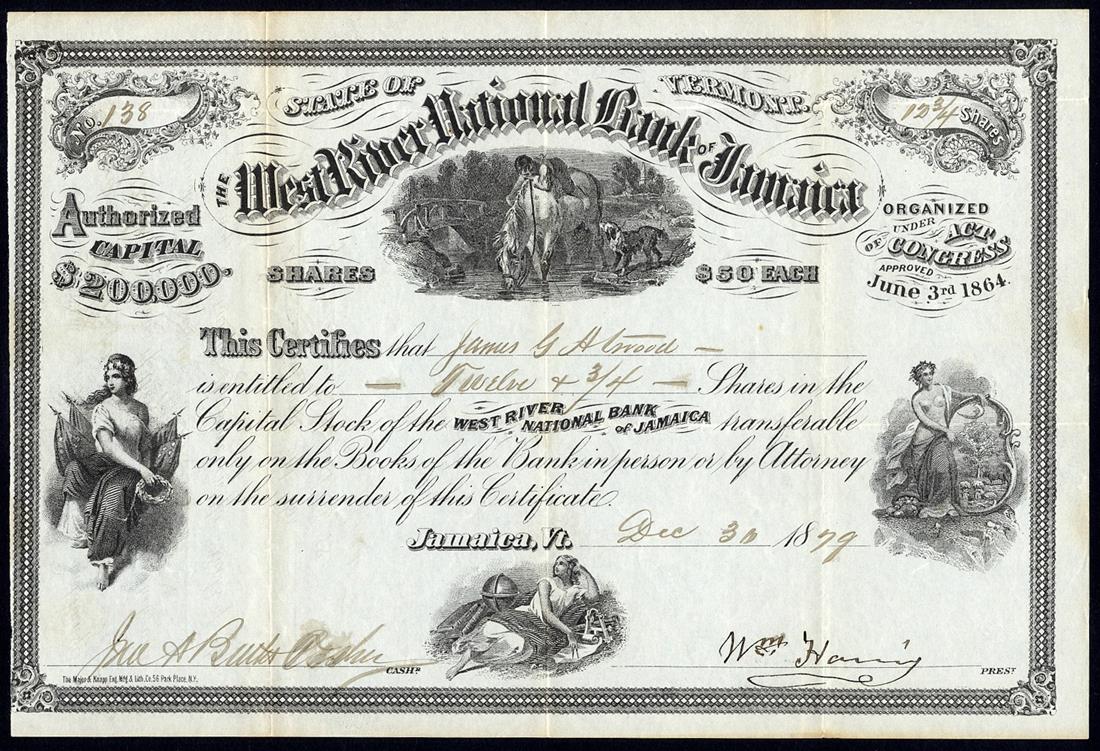 STATE OF VERMONT.
No. 138
12 3/4 Shares
THE West River National Bank OF Jamaica
Authorized CAPITAL $200,000.
ORGANIZED UNDER ACT OF CONGRESS APPROVED June 3rd 1864.
SHARES $50 EACH
This Certifies that James G Atwood —
is entitled to — Twelve & 3/4 — Shares in the
Capital Stock of the WEST RIVER NATIONAL BANK of JAMAICA transferable
only on the Books of the Bank in person or by Attorney
on the surrender of this Certificate.
Jamaica, Vt. Dec 30 1879
Jno A Butler Cashr CASHR
Wm Harris PREST
The Major & Knapp Eng. Mfg & Lith. Co. 56 Park Place, N.Y.